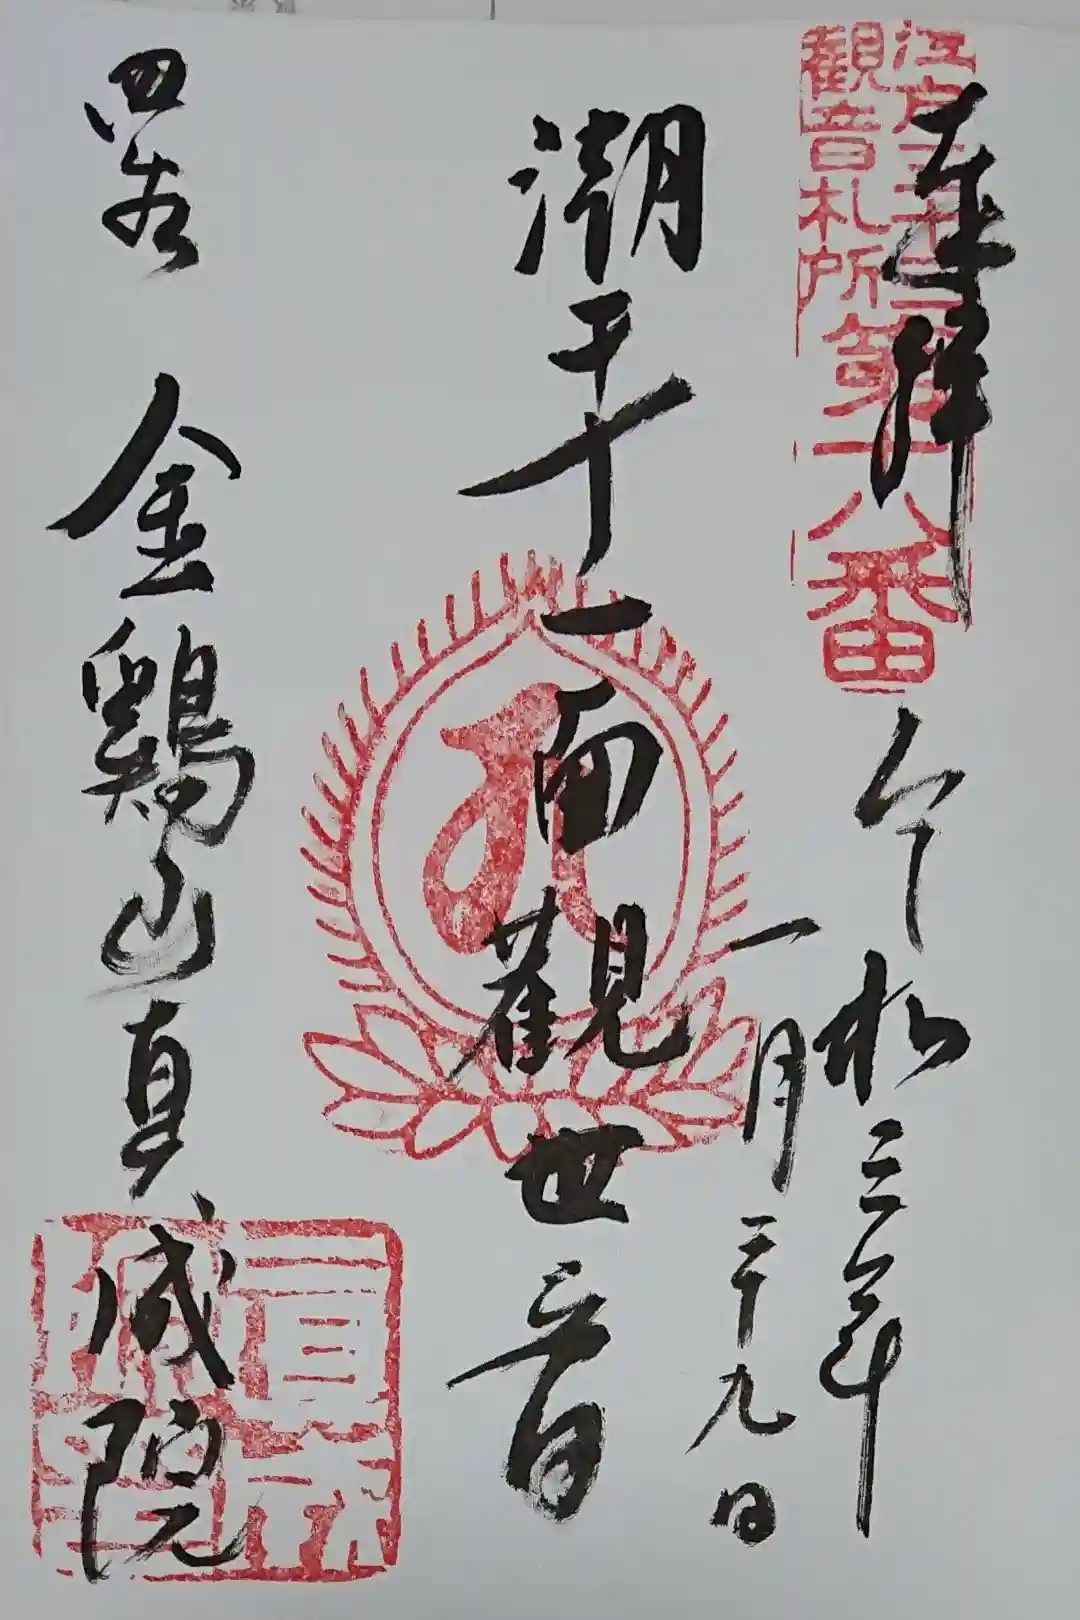 奉拝
江戸三十三
觀音札所
第十八番
令和三年
一月二十九日
潮干十一面觀世音
四谷 金鶏山真成院